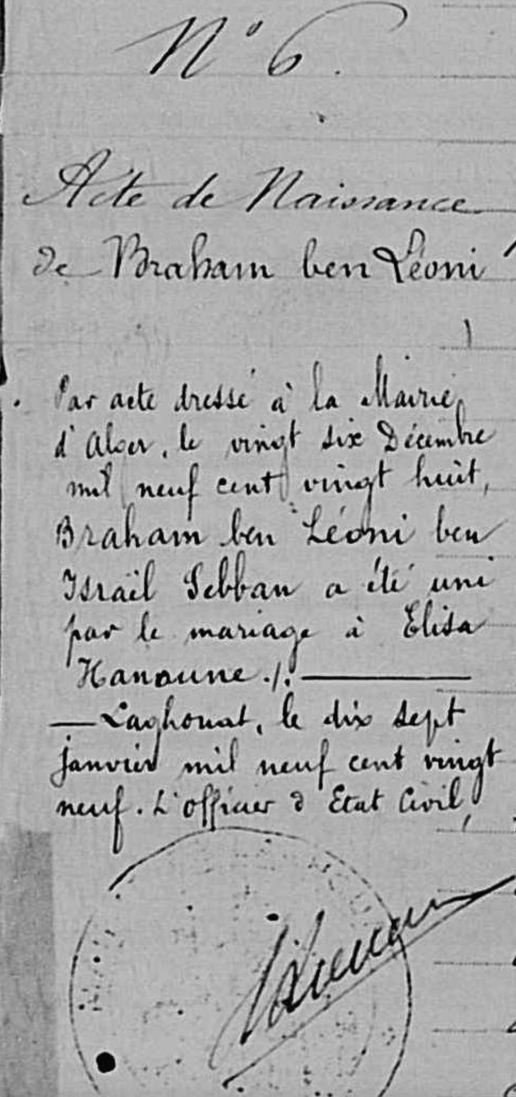 N° 6.
Acte de Naissance
de Braham ben Léoni
Par acte dressé à la Mairie
d'Alger, le vingt six Décembre
mil neuf cent vingt huit,
Braham ben Léoni ben
Israël Sebban a été uni
par le mariage à Elisa
Hanoune ./. —
— Laghouat, le dix sept
janvier mil neuf cent vingt
neuf. L'officier d'Etat Civil,